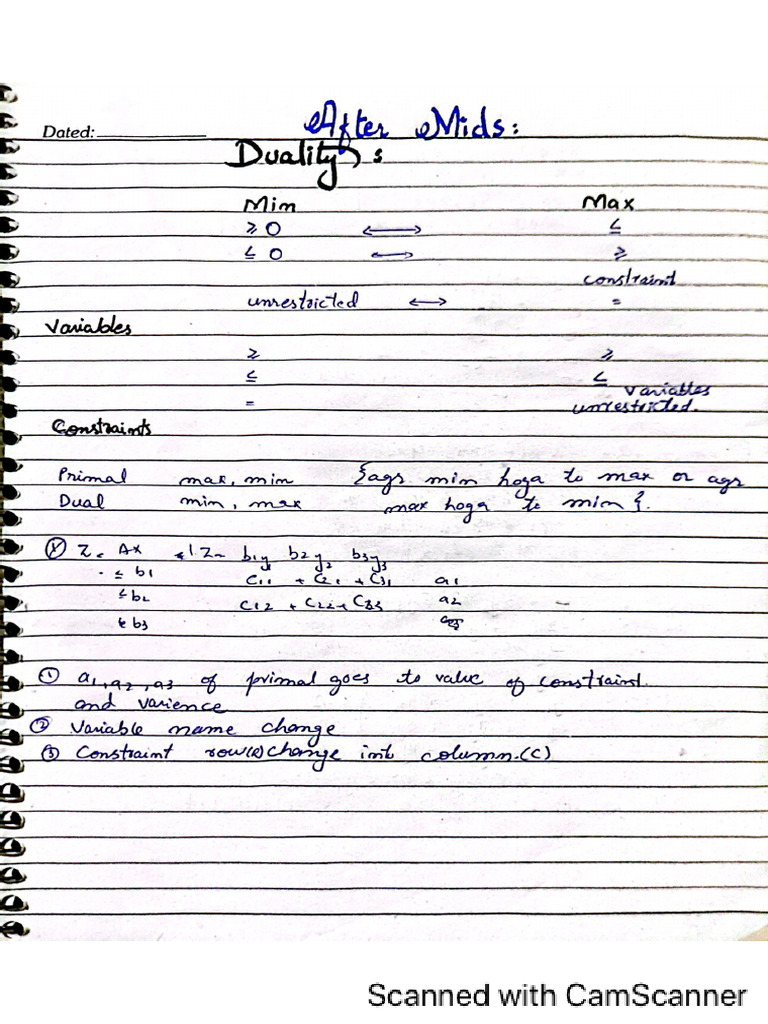 Dated:
After Mids:
Duality :
Min Max
≥ 0 ⟷ ≤
≤ 0 ⟷ ≥
constraint
unrestricted ⟷ =
Variables
≥ ≥
≤ ≤ variables
= unrestricted.
Constraints
Primal max, min {agr min hoga to max or agr
Dual min, max max hoga to min }.
Z = Ax Z = b1y1 b2y2 b3y3
≤ b1 C11 + C21 + C31 a1
≤ b2 C12 + C22 + C33 a2
b3
① a1, a2, a3 of primal goes to value of constraint.
and varience
② Variable name change
③ Constraint row(s) change into column.(C)
Scanned with CamScanner